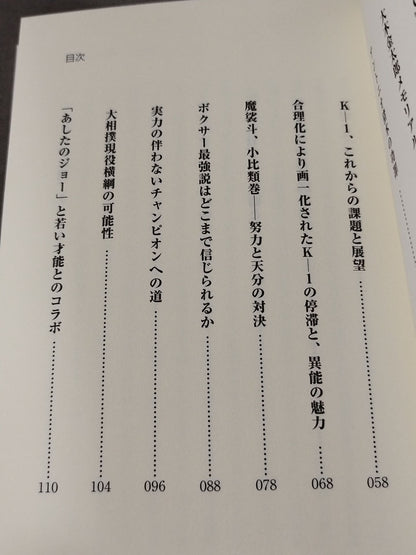 K—1、これからの課題と展望……058
合理化により画一化されたK—1の停滞と、異能の魅力……068
魔裟斗、小比類巻――努力と天分の対決……078
ボクサー最強説はどこまで信じられるか……088
実力の伴わないチャンピオンへの道……096
大相撲現役横綱の可能性……104
「あしたのジョー」と若い才能とのコラボ……110
目次